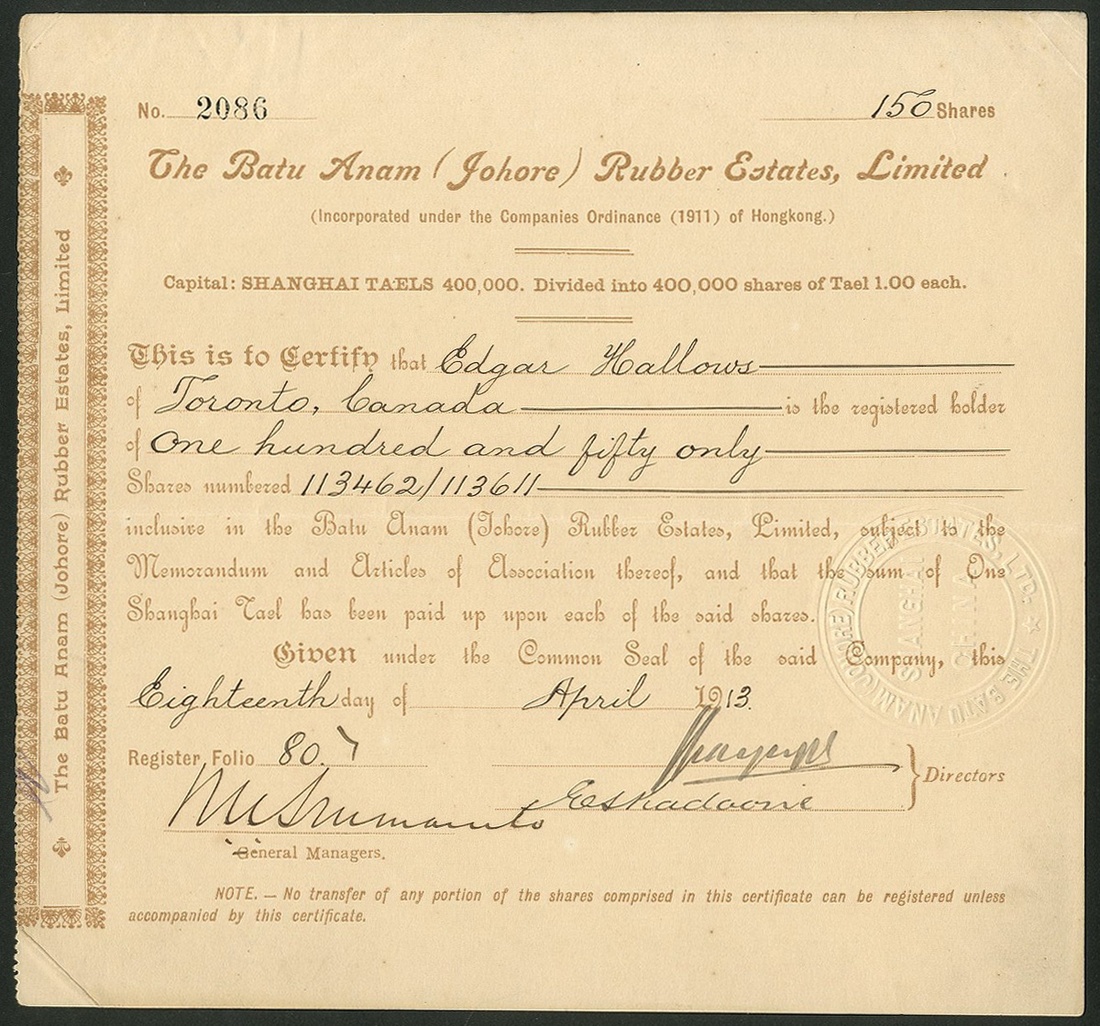 No. 2086
150 Shares
The Batu Anam (Johore) Rubber Estates, Limited
(Incorporated under the Companies Ordinance (1911) of Hongkong.)
Capital: SHANGHAI TAELS 400,000. Divided into 400,000 shares of Tael 1.00 each.
This is to Certify that Edgar Hallows
of Toronto, Canada is the registered holder
of One hundred and fifty only
Shares numbered 113462/113611
inclusive in the Batu Anam (Johore) Rubber Estates, Limited, subject to the
Memorandum and Articles of Association thereof, and that the sum of One
Shanghai Tael has been paid up upon each of the said shares.
Given under the Common Seal of the said Company, this
Eighteenth day of April 1913.
Register Folio 80.
Directors
General Managers.
NOTE. — No transfer of any portion of the shares comprised in this certificate can be registered unless
accompanied by this certificate.
The Batu Anam (Johore) Rubber Estates, Limited
THE BATU ANAM (JOHORE) RUBBER ESTATES, LTD.
SHANGHAI
CHINA